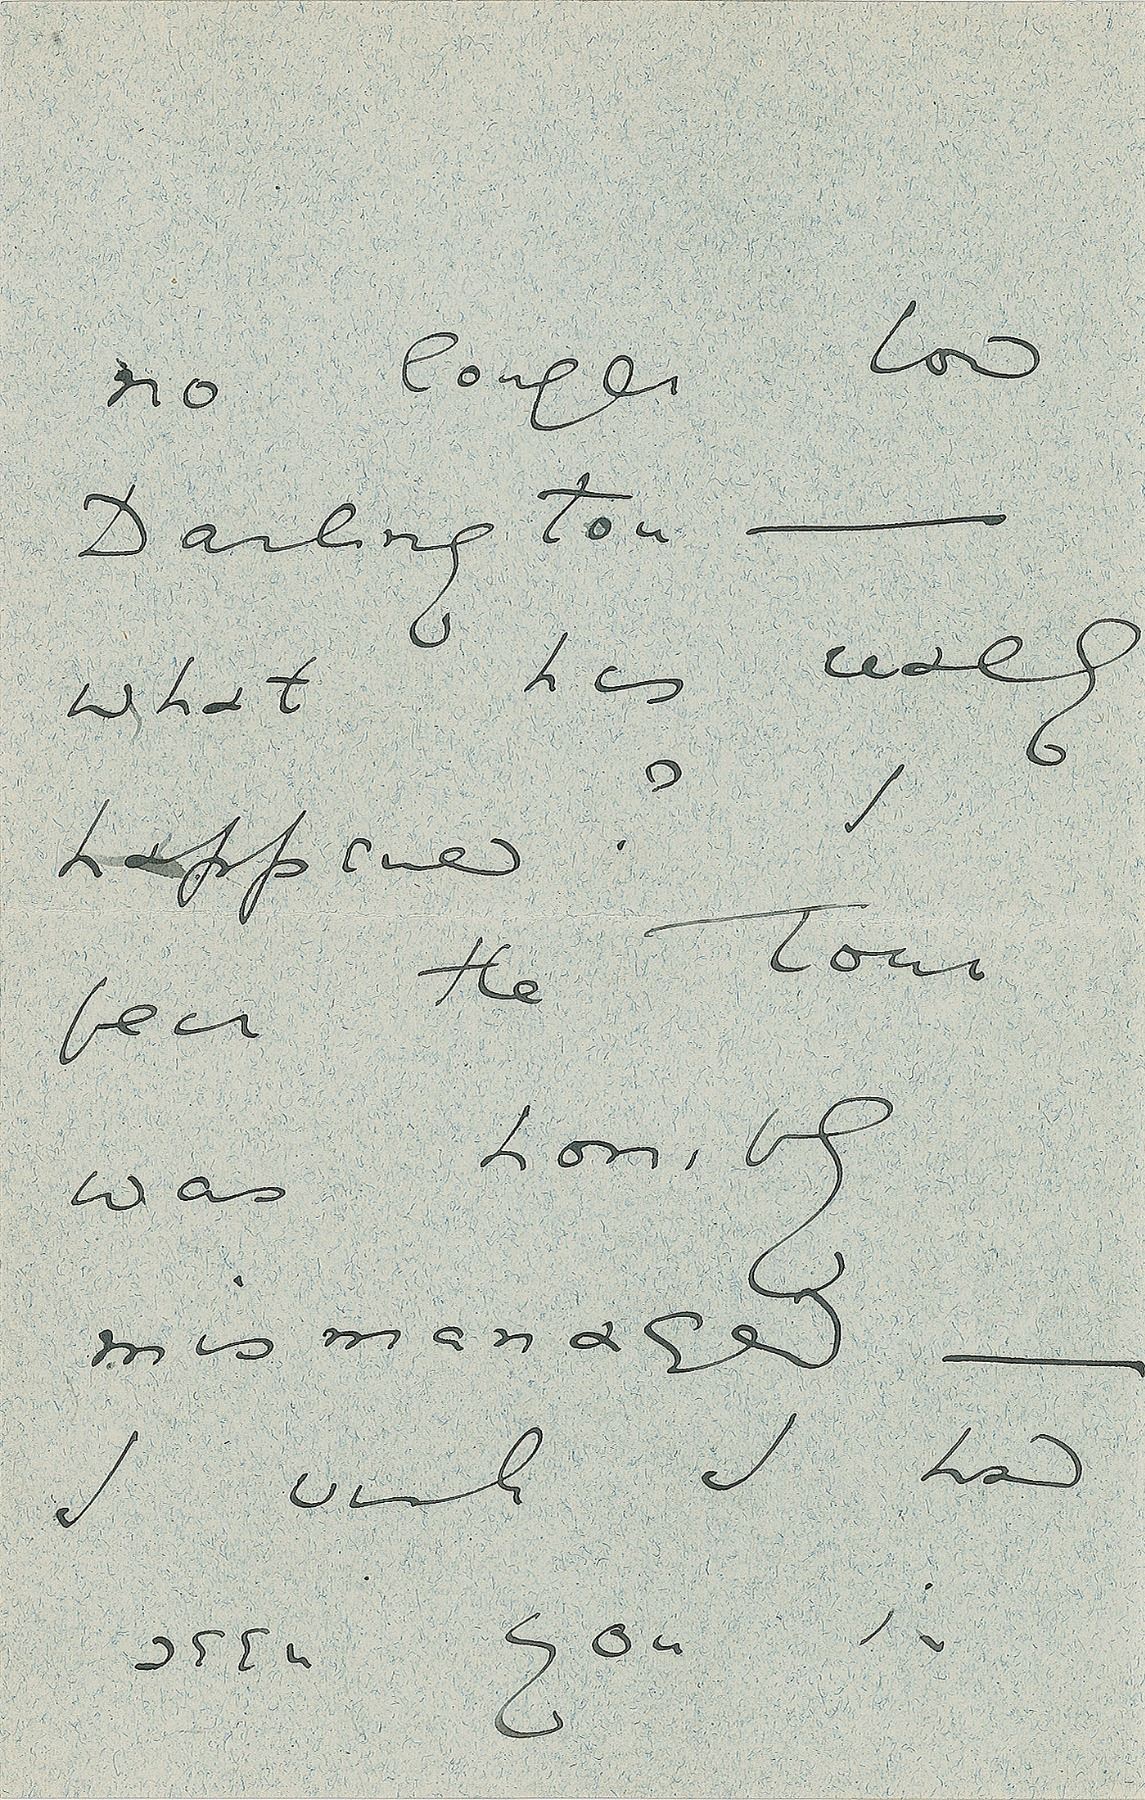 no longer Lord
Darlington —
what has really
happened? I
fear the Tour
was horribly
mismanaged —
I wish I had
seen you in